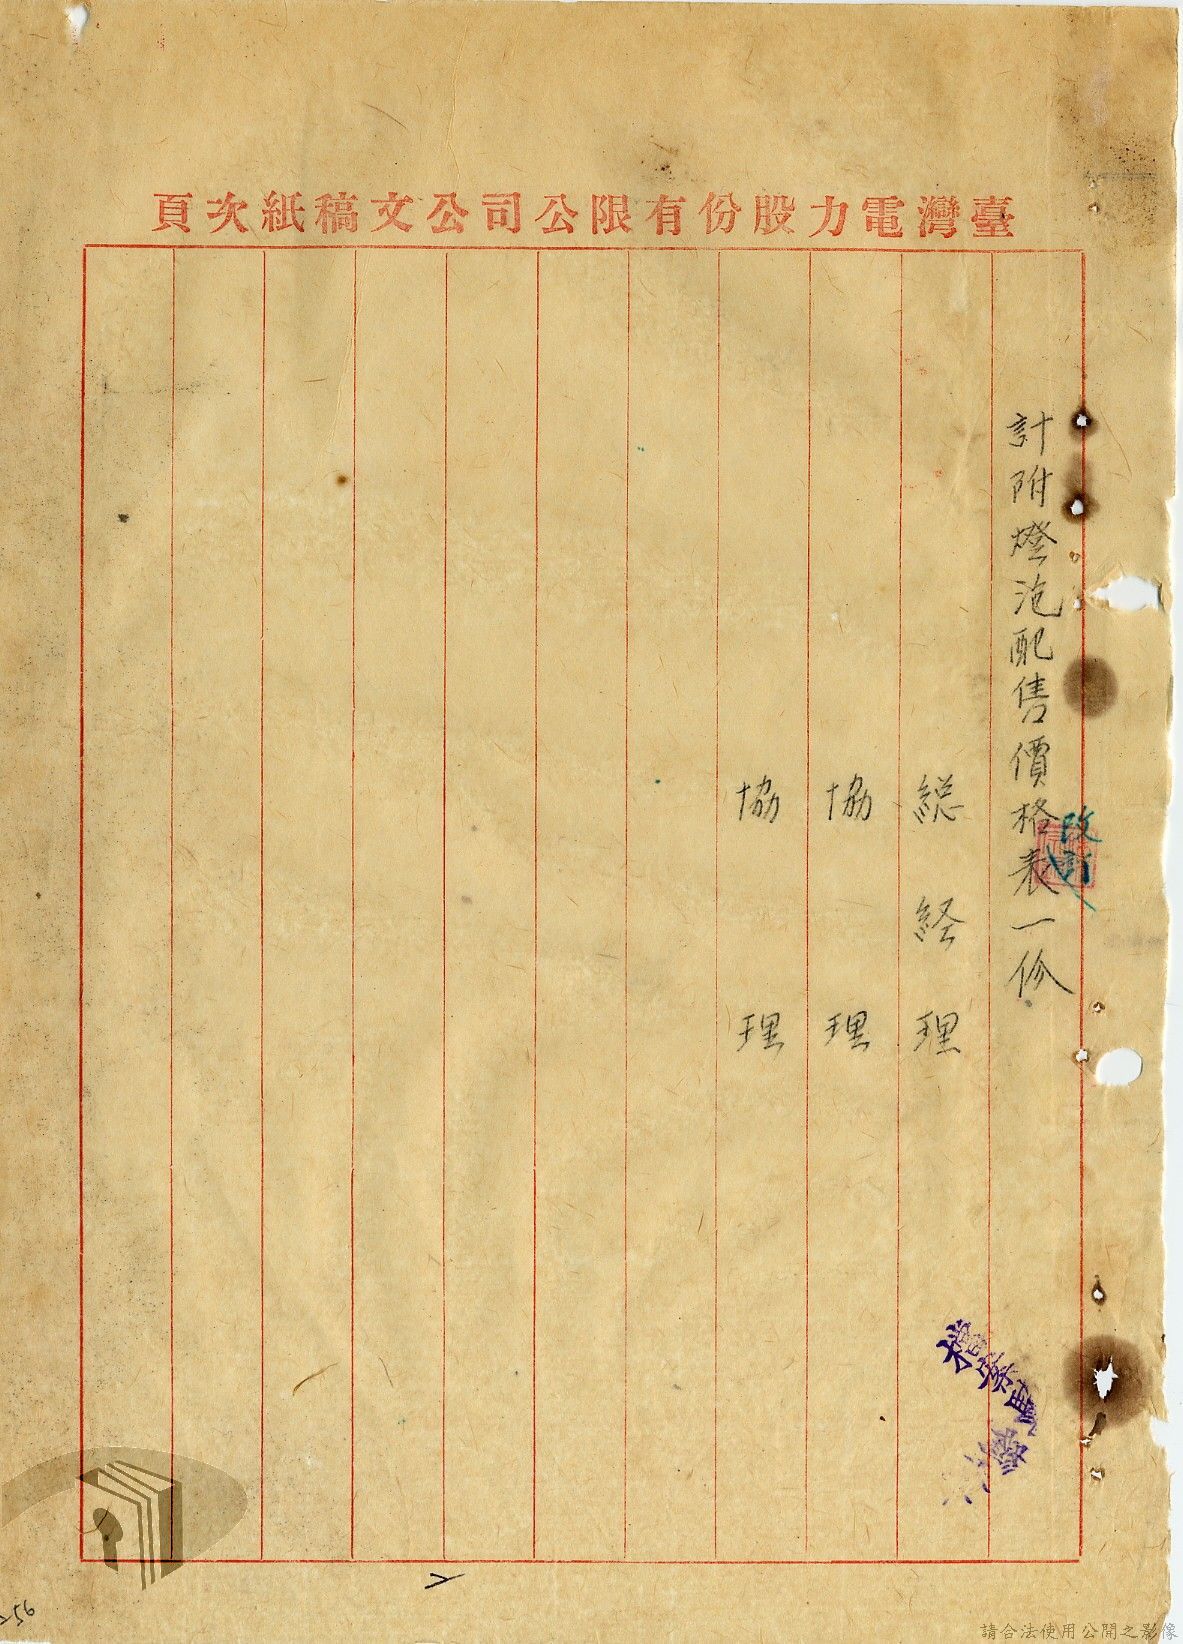 臺灣電力股份有限公司公文稿紙次頁
計附燈泡配售價格表一份
改訂
総経理
協理
協理
檔案
56
請合法使用公開之影像